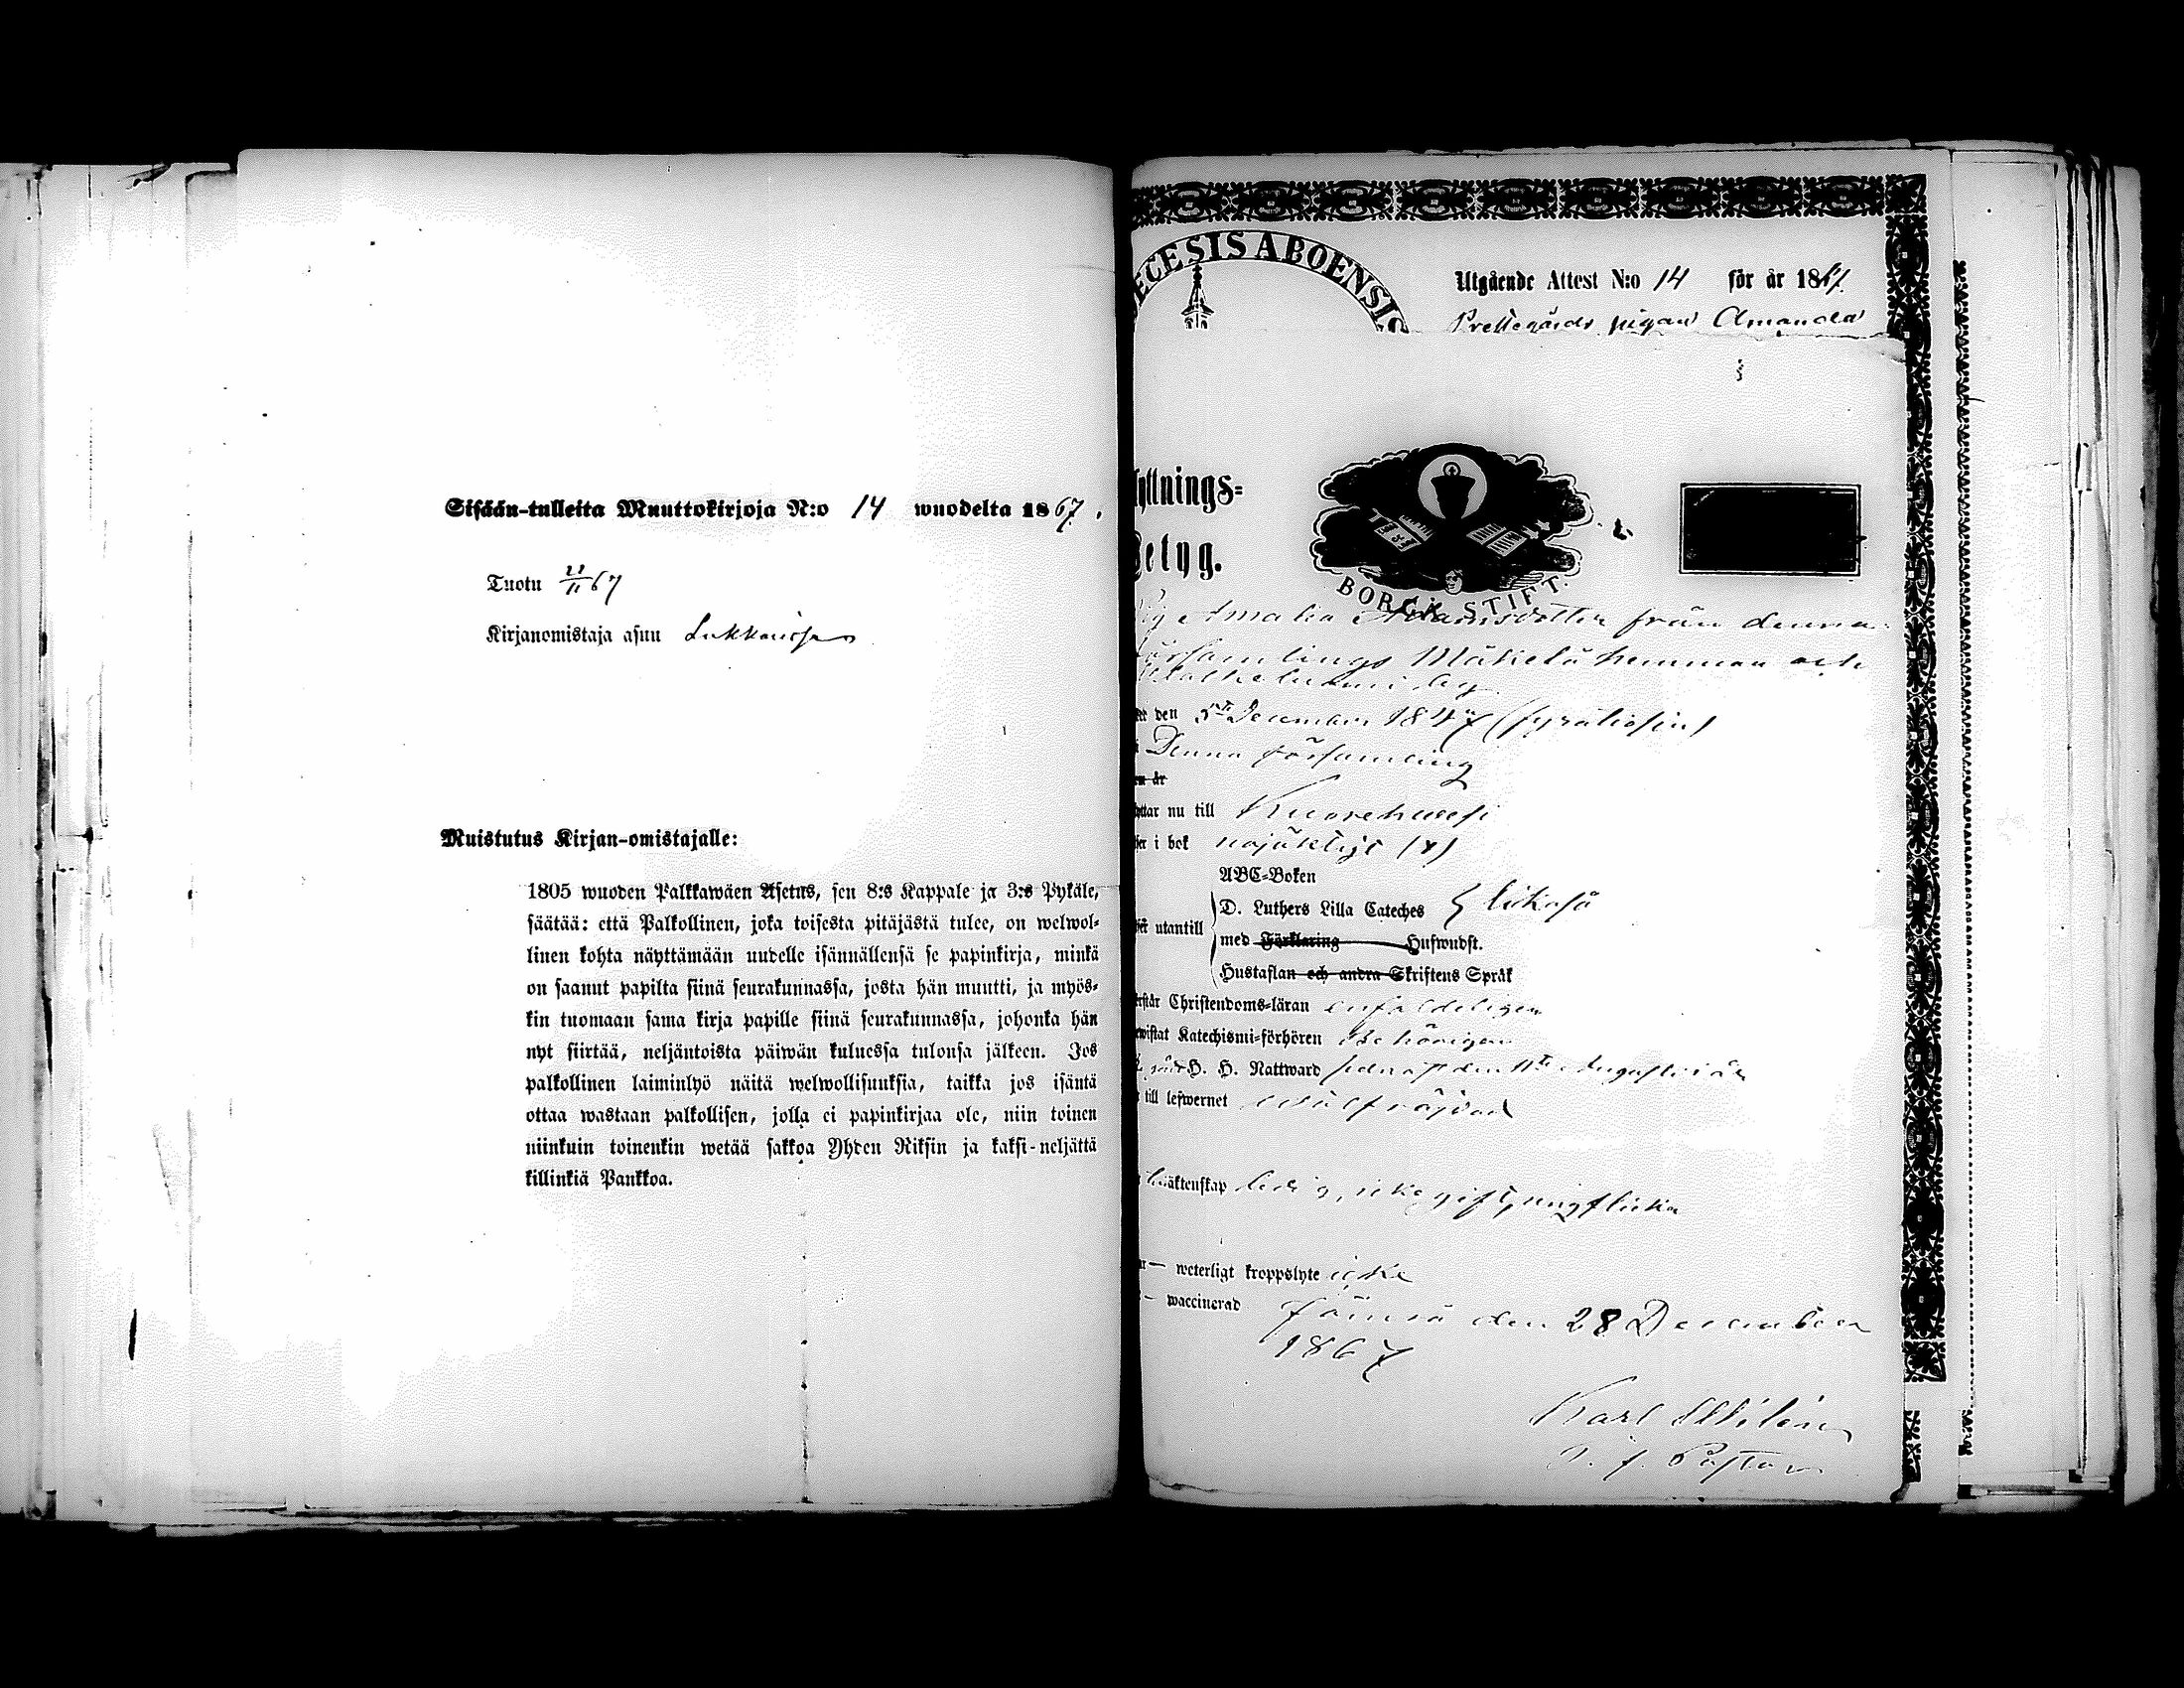 Sisään-tulleita Muuttokirjoja N:o 14 wuodelta 1867.
Tuotu 67
Kirjanomistaja asuu
Muistutus Kirjan-omistajalle:
1805 wuoden Palkkawäen Asetus, sen 8:s Kappale ja 3:s Pykäle,
säätää: että Palkollinen, joka toisesta pitäjästä tulee, on welwol-
linen kohta näyttämään uudelle isännällensä se papinkirja, minkä
on saanut papilta siinä seurakunnassa, josta hän muutti, ja myös-
kin tuomaan sama kirja papille siinä seurakunnassa, johonka hän
nyt siirtää, neljäntoista päiwän kuluessa tulonsa jälkeen. Jos
palkollinen laiminlyö näitä welwollisuuksia, taikka jos isäntä
ottaa wastaan palkollisen, jolla ei papinkirjaa ole, niin toinen
niinkuin toinenkin wetää sakkoa Yhden Riksin ja kaksi-neljättä
killinkiä Pankkoa.
ECESIS ABOENSIS
Utgående Attest N:o 14 för år 1867.
Prestegårds pigan Amanda
yttnings-
Betyg.
BORGÅ STIFT.
Amalia Adamsdotter från denna
församlings Mäkelä hemman och
den 5te December 1847 (fyratiosju)
Denna församling
en år
yttar nu till Kuorehwesi
i bok nöjaktigt (x)
ABC-Boken
utantill D. Luthers Lilla Cateches likaså
med Förklaring Hufwudst.
Hustaflan och andra Skriftens Språk
Christendoms-läran enfaldeligen
Katechismi-förhören behörigen
H. H. Nattward sednast den 11te Augusti i år
till lefwernet wälfräjdad
äktenskap ledig, icke gift, ung flicka
weterligt kroppslyte icke
waccinerad
Jämsä den 28 December
1867
Karl
v. f. Pastor